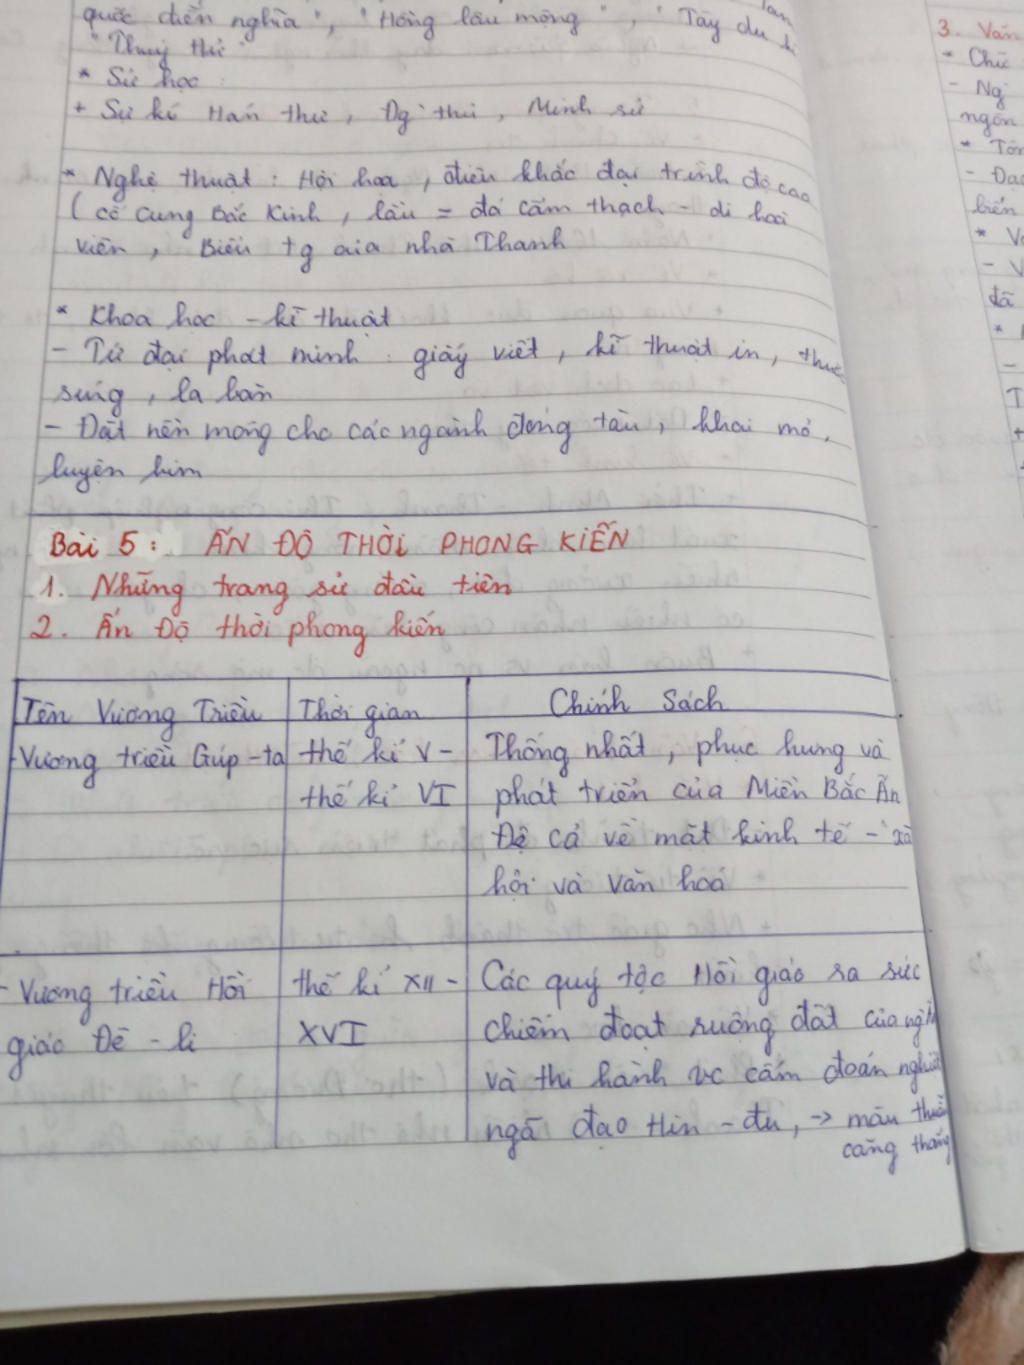 quốc diễn nghĩa", "Hồng lâu mộng", "Tây du kí
"Thuỷ thử"
* Sử học:
+ Sử kí Hán thư, Đg thư, Minh sử
* Nghệ thuật: Hội hoạ, điêu khắc đạt trình độ cao
( cố cung Bắc Kinh, lầu = đá cẩm thạch - di hoà
viên, Biểu tg của nhà Thanh
* Khoa học - kĩ thuật
- Tứ đại phát minh: giấy viết, kĩ thuật in, thuốc
súng, la bàn
- Đặt nền móng cho các ngành đóng tàu, khai mỏ,
luyện kim
Bài 5: ẤN ĐỘ THỜI PHONG KIẾN
1. Những trang sử đầu tiên
2. Ấn Độ thời phong kiến
Tên Vương Triều Thời gian Chính Sách
- Vương triều Gúp-ta thế kỉ V - Thống nhất, phục hưng và
thế kỉ VI phát triển của Miền Bắc Ấn
Độ cả về mặt kinh tế - xã
hội và văn hoá
- Vương triều Hồi thế kỉ XII - Các quý tộc Hồi giáo ra sức
giáo Đê - li XVI chiếm đoạt ruộng đất của ng
và thi hành vc cấm đoán nghiệt
ngã đạo Hin - đu, -> mâu thuẫn
căng thẳng
3. Văn
* Chữ
- Ng
ngôn
* Tôn
- Đạo
biến
* V
- V
đã
*
-
T
+